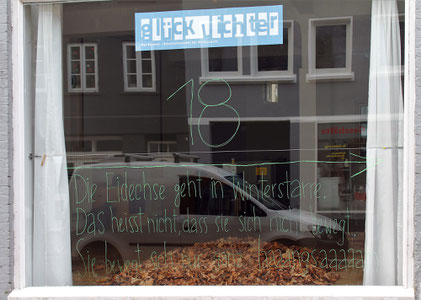 glück lichter
18
Die Eidechse geht in Winterstarre.
Das heisst nicht, dass sie sich nicht bewegt.
Sie bewegt sich nur